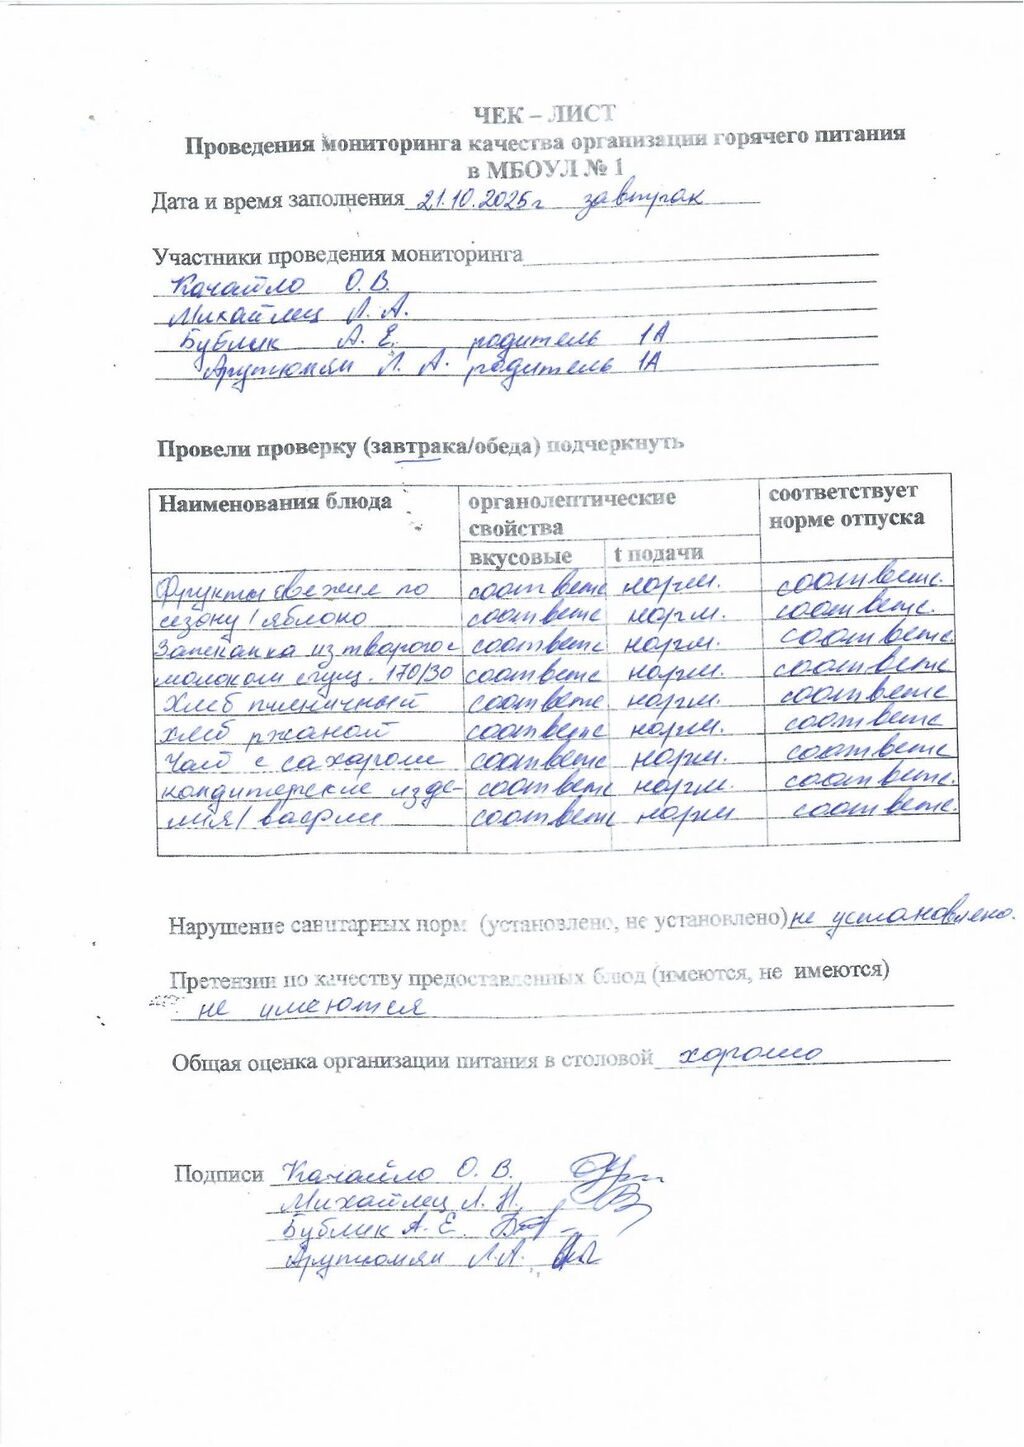 ЧЕК – ЛИСТ
Проведения мониторинга качества организации горячего питания
в МБОУЛ № 1
Дата и время заполнения 21.10.2025г завтрак
Участники проведения мониторинга
Качайло О. В.
Михайлец Л. А.
Бублик А. Е. родитель 1А
Арутюмян Л. А. родитель 1А
Провели проверку (завтрака/обеда) подчеркнуть
Наименования блюда органолептические свойства соответствует норме отпуска
вкусовые t подачи
Фрукты свежие по соответс норм. соответс.
сезону/яблоко соответс норм. соответс.
Запеканка из творога с соответс норм. соответс.
молоком сгущ. 170/30 соответс норм. соответс
Хлеб пшеничный соответс норм. соответс
хлеб ржаной соответс норм. соответс
Чай с сахаром соответс норм. соответс
кондитерские изде- соответс норм. соответс.
лия/вафли соответс норм соответс.
Нарушение санитарных норм (установлено, не установлено) не установлено.
Претензии по качеству предоставленных блюд (имеются, не имеются)
не имеются
Общая оценка организации питания в столовой хорошо
Подписи Качайло О. В.
Михайлец Л. Н.
Бублик А. Е.
Арутюмян Л.А.